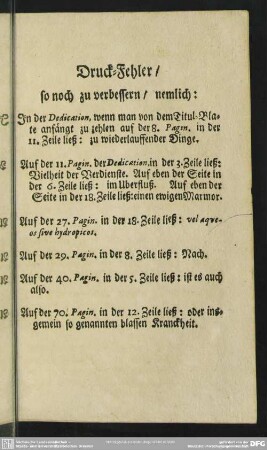 Druck-Fehler/
so noch zu verbessern/ nemlich:
In der Dedication, wenn man von dem Titul-Bla-
te anfängt zu zehlen auf der 8. Pagin. in der
11. Zeile ließ: zu wiederlauffender Dinge.
Auf der 11. Pagin. der Dedication. in der 3. Zeile ließ:
Vielheit der Verdienste. Auf eben der Seite in
der 6. Zeile ließ: im Uberfluß. Auf eben der
Seite in der 18. Zeile ließ: einen ewigen Marmor.
Auf der 27. Pagin. in der 18. Zeile ließ: vel aque-
os sive hydropicos.
Auf der 29. Pagin. in der 8. Zeile ließ: Nach.
Auf der 40. Pagin. in der 5. Zeile ließ: ist es auch
also.
Auf der 70. Pagin. in der 12. Zeile ließ: oder ins-
gemein so genannten blassen Kranckheit.